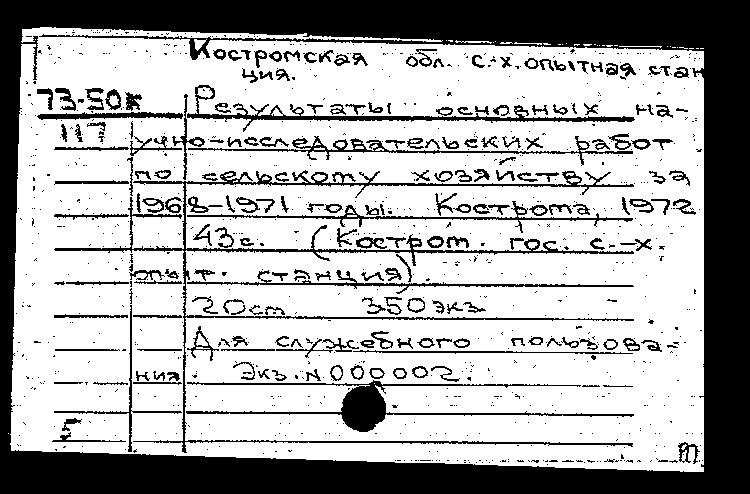 Костромская обл. с.-х. опытная стан
ция.
73-50к Результаты основных на-
117 учно-исследовательских работ
по сельскому хозяйству за
1968-1971 годы. Кострома, 1972
43с. (Костром. гос. с.-х.
опыт. станция).
20см 350экз
Для служебного пользова-
ния. Экз. N 000002.
5